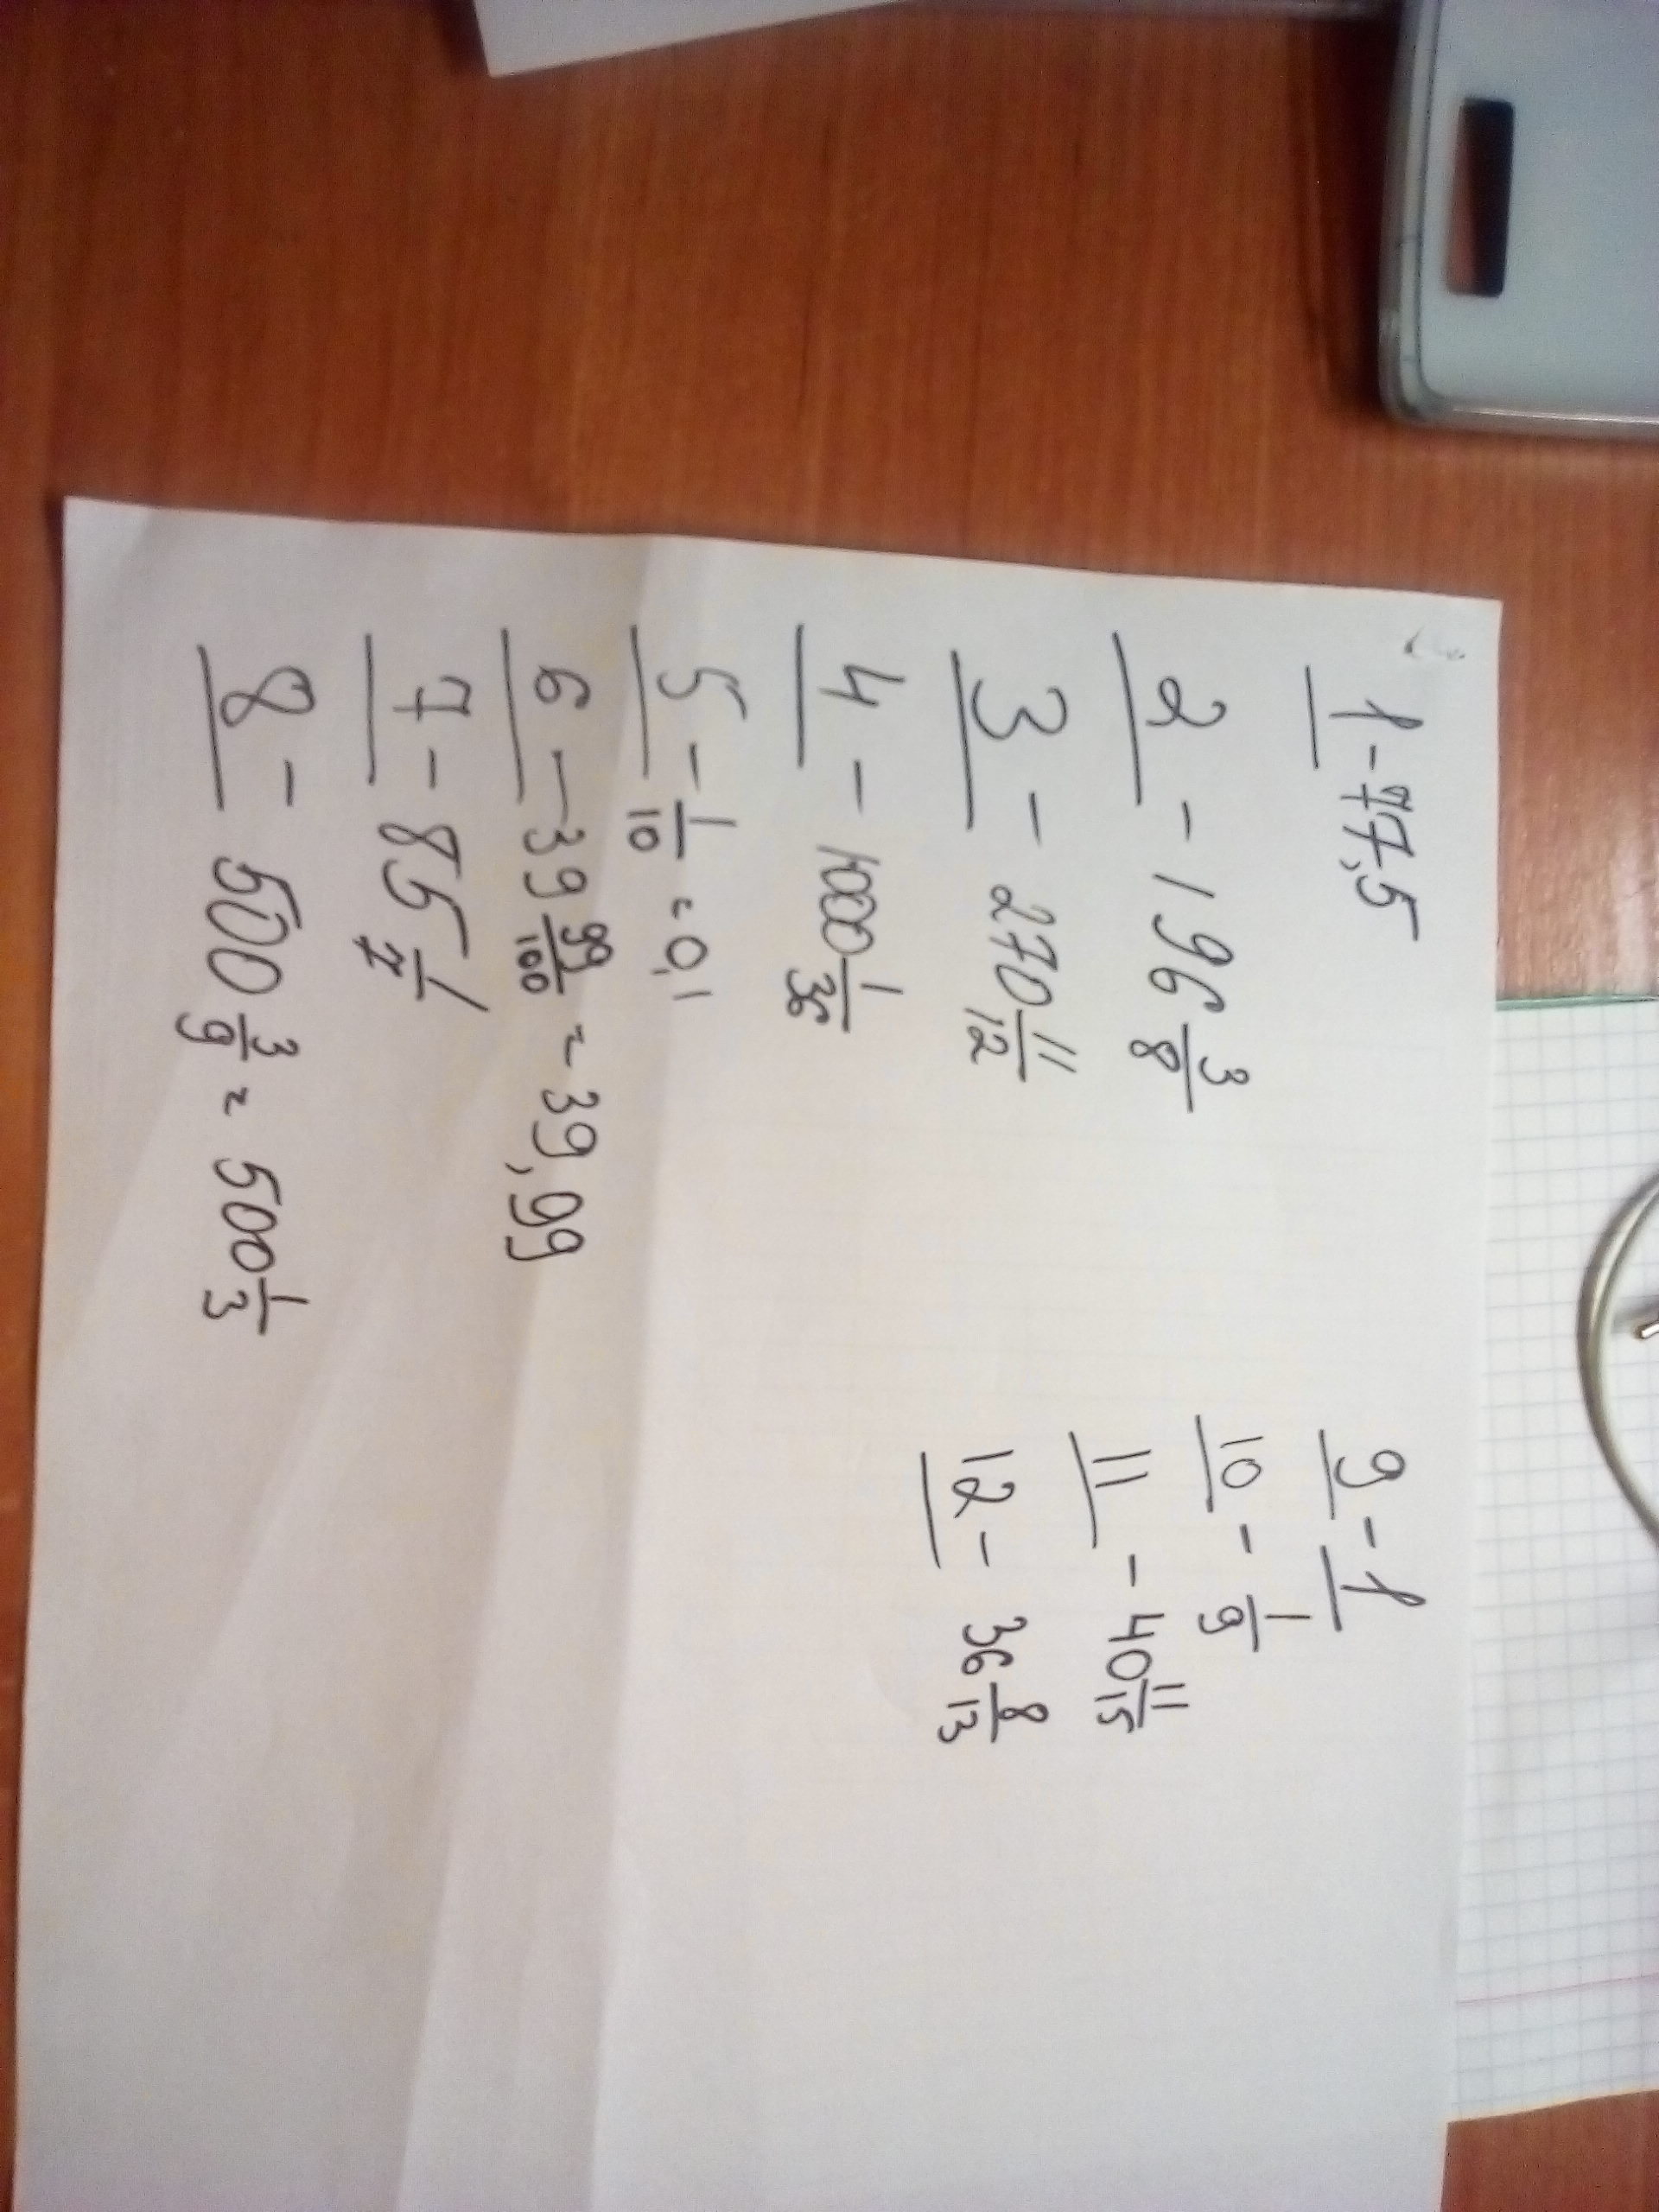 1 - 77,5
2 - 196 3/8
3 - 270 11/12
4 - 1000 1/36
5 - 1/10 = 0,1
6 - 39 99/100 = 39,99
7 - 85 1/7
8 - 500 3/9 = 500 1/3
9 - 1
10 - 1/9
11 - 40 11/15
12 - 36 8/13